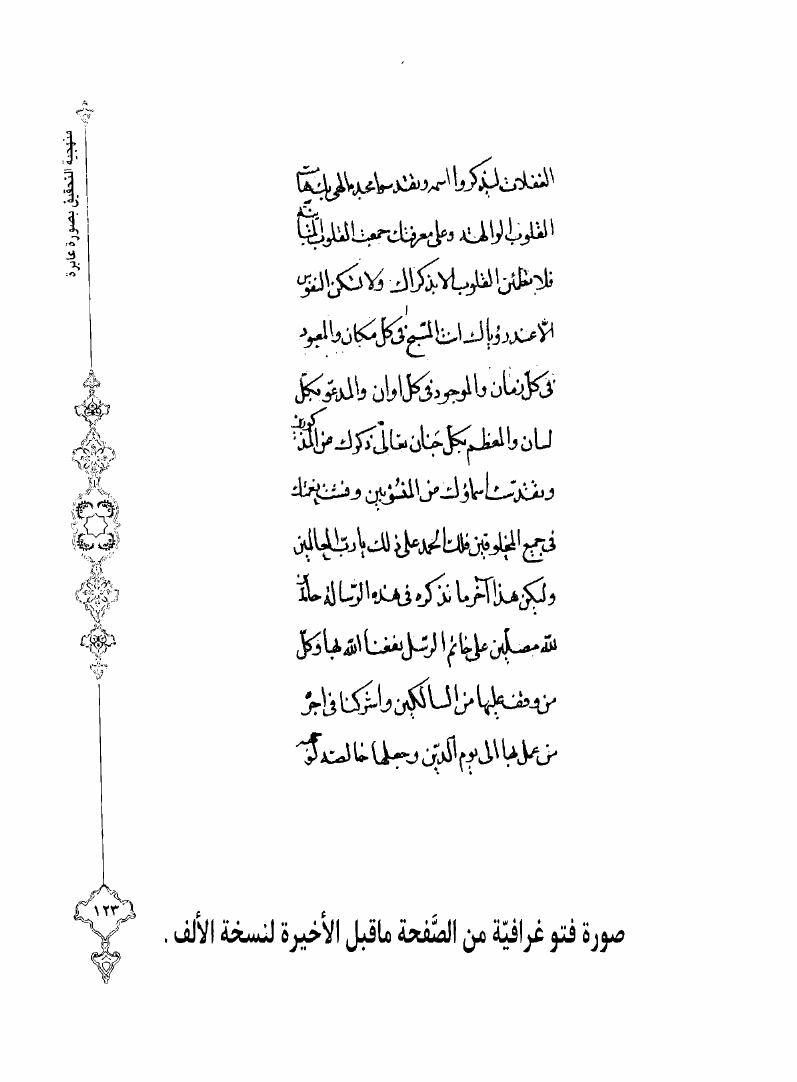 منهجية التحقيق بصورة عابرة
الغفلات ليذكروا اسمه ويقدسوا مجده الهي بك هامت
القلوب الوالهة وعلى معرفتك جمعت القلوب المتباينة
فلا تطمئن القلوب الا بذكراك ولا تسكن النفوس
الّا عند رؤياك انت المسبح فى كلّ مكان والمعبود
فى كلّ زمان والموجود فى كلّ اوان والمدعوّ بكلّ
لسان والمعظم بكلّ جنان تعالى ذكرك من المذكورين
وتقدّست اسماؤك من المنسوبين وفشت نعمتك
فى جميع المخلوقين فلك الحمد على ذلك يا ربّ العالمين
وليكن هذا آخر ما نذكره فى هذه الرّسالة حامدين
لله مصلّين على خاتم الرّسل نفعنا الله بها وكلّ
من وقف عليها من السالكين واشركنا فى اجر
من عمل بها الى يوم الدّين وجعلها خالصة لوجهه
١٢٣
صورة فتو غرافيّة من الصَّفحة ماقبل الأخيرة لنسخة الألف .